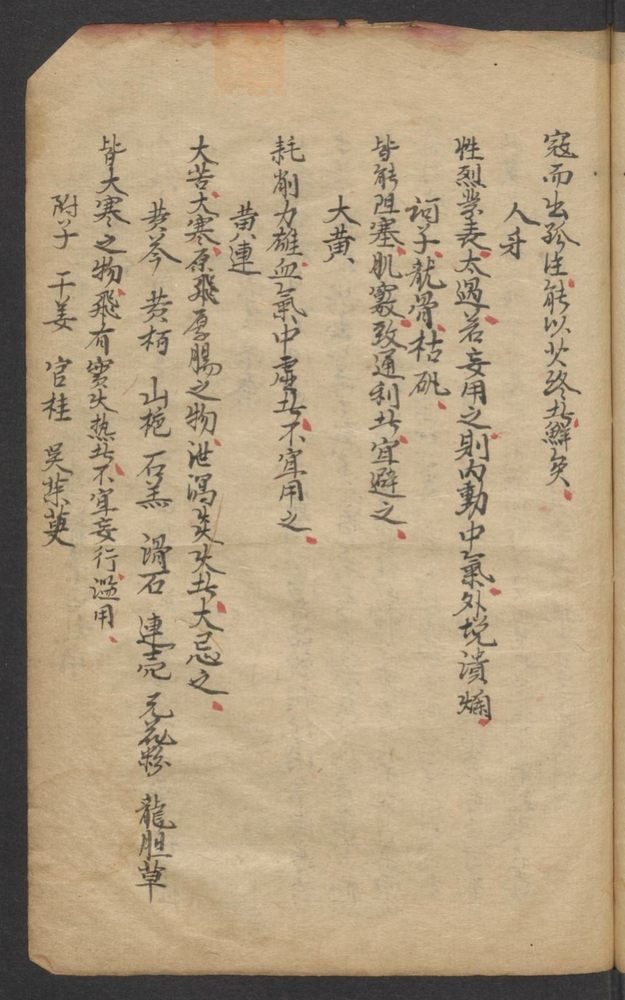 寇而出於法能以火终者鲜矣
人牙
性烈发表太過若妄用之則内動中氣外增潰爛
訶子 龍骨 枯矾
皆能阻塞肌竅致通利者宜避之
大黄
耗削力雄血氣中虚者不宜用之
黄連
大苦大寒原飛厚腸之物泄瀉炎火者大忌之
黄芩 黄柏 山栀 石羔 滑石 連壳 元花粉 龍胆草
皆大寒之物飛有實火热者不宜妄行滥用
附子 干姜 官桂 吴茱萸